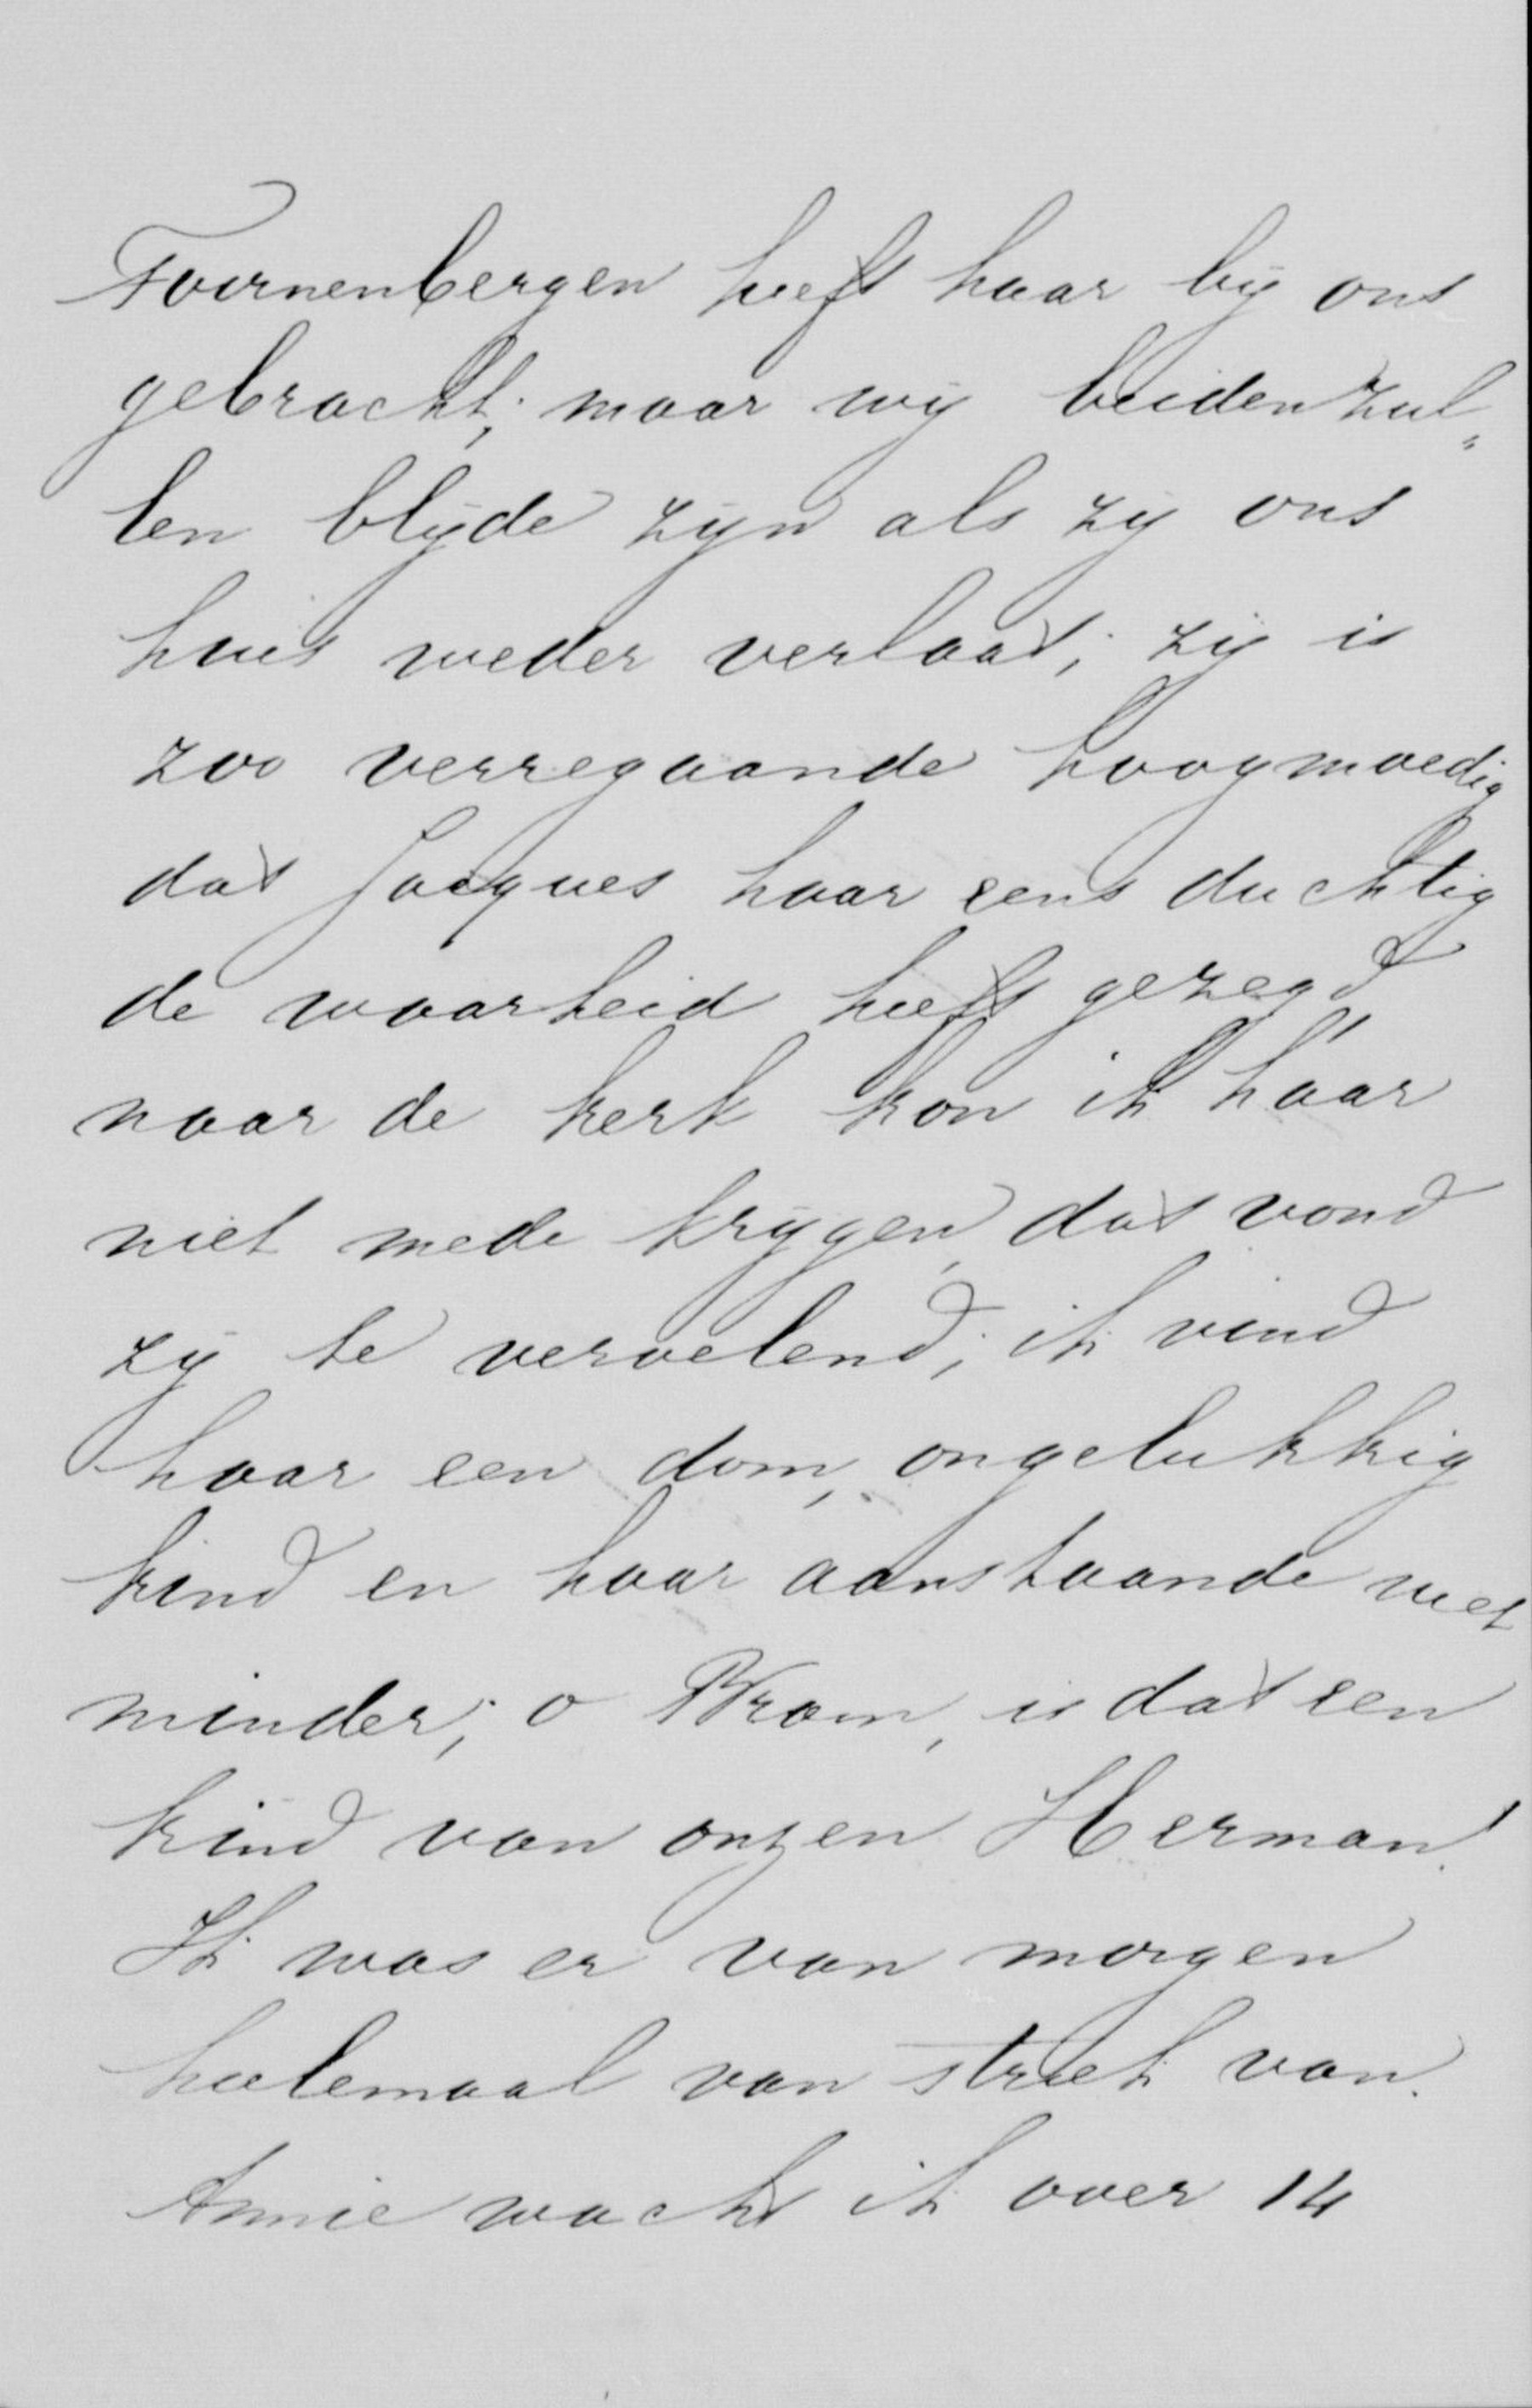 Toornenbergen heeft haar bij ons
gebracht; maar wij beiden zul„
len blijde zijn als zij ons
huis weder verlaat; zij is
zoo verregaande hoogmoedig
dat Jacques haar eens duchtig
de waarheid heeft gezegd,
naar de kerk kon ik haar
niet mede krijgen, dat vond
zij te vervelend; ik vind
haar een dom, ongelukkig
kind en haar aanstaande niet
minder; o Bram, is dat een
kind van onzen Herman!
Ik was er van morgen
heelemaal van streek van.
Annie wacht ik over 14